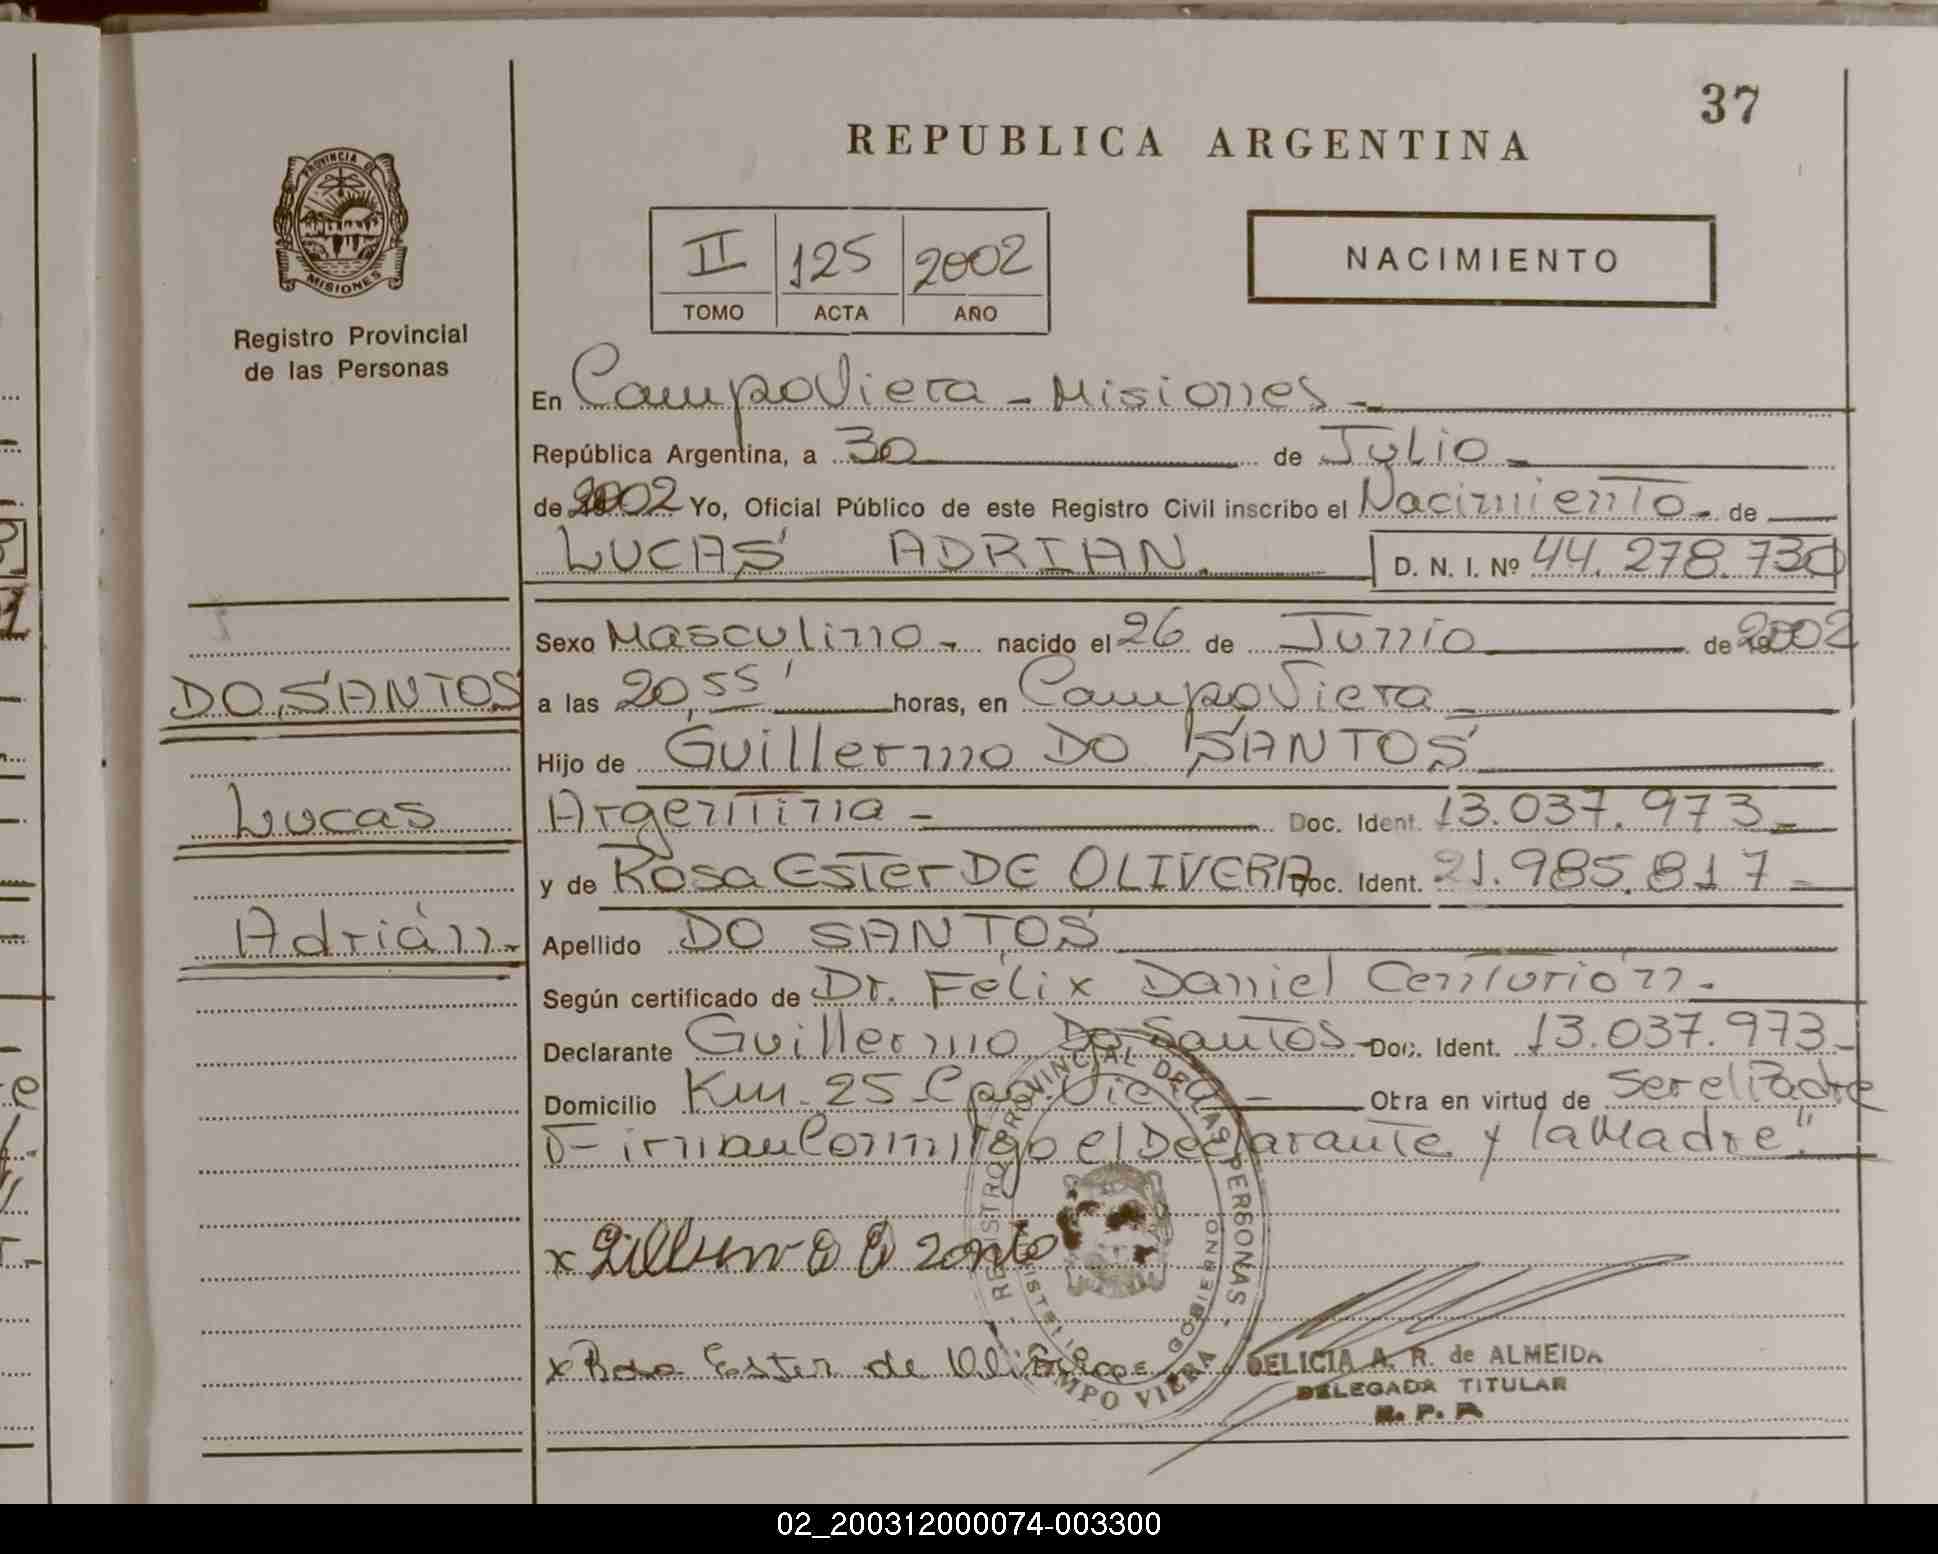 37
REPUBLICA ARGENTINA
PROVINCIA DE
MISIONES
Registro Provincial
de las Personas
II 125 2002
TOMO ACTA AÑO
NACIMIENTO
En Campo Viera - Misiones -
República Argentina, a 30 de Julio -
de 2002 Yo, Oficial Público de este Registro Civil inscribo el Nacimiento - de
LUCAS ADRIAN. D. N. I. Nº 44.278.730
Sexo Masculino - nacido el 26 de Junio de 2002
DO SANTOS
a las 20,55' horas, en Campo Viera -
Hijo de Guillermo DO SANTOS
Lucas
Argentina - Doc. Ident. 13.037.973 -
y de Rosa Ester DE OLIVERA Doc. Ident. 21.985.817 -
Adrián -
Apellido DO SANTOS
Según certificado de Dr. Félix Daniel Centurión -
Declarante Guillermo Do Santos - Doc. Ident. 13.037.973 -
Domicilio Km. 25 Cpo. Viera - Obra en virtud de ser el Padre
Firman Conmigo el Declarante y la Madre".
REGISTRO PROVINCIAL DE LAS PERSONAS
GOBIERNO
CAMPO VIERA
x
x Rosa Ester de
DELICIA A. R. de ALMEIDA
DELEGADA TITULAR
R. P. P.
02_200312000074-003300